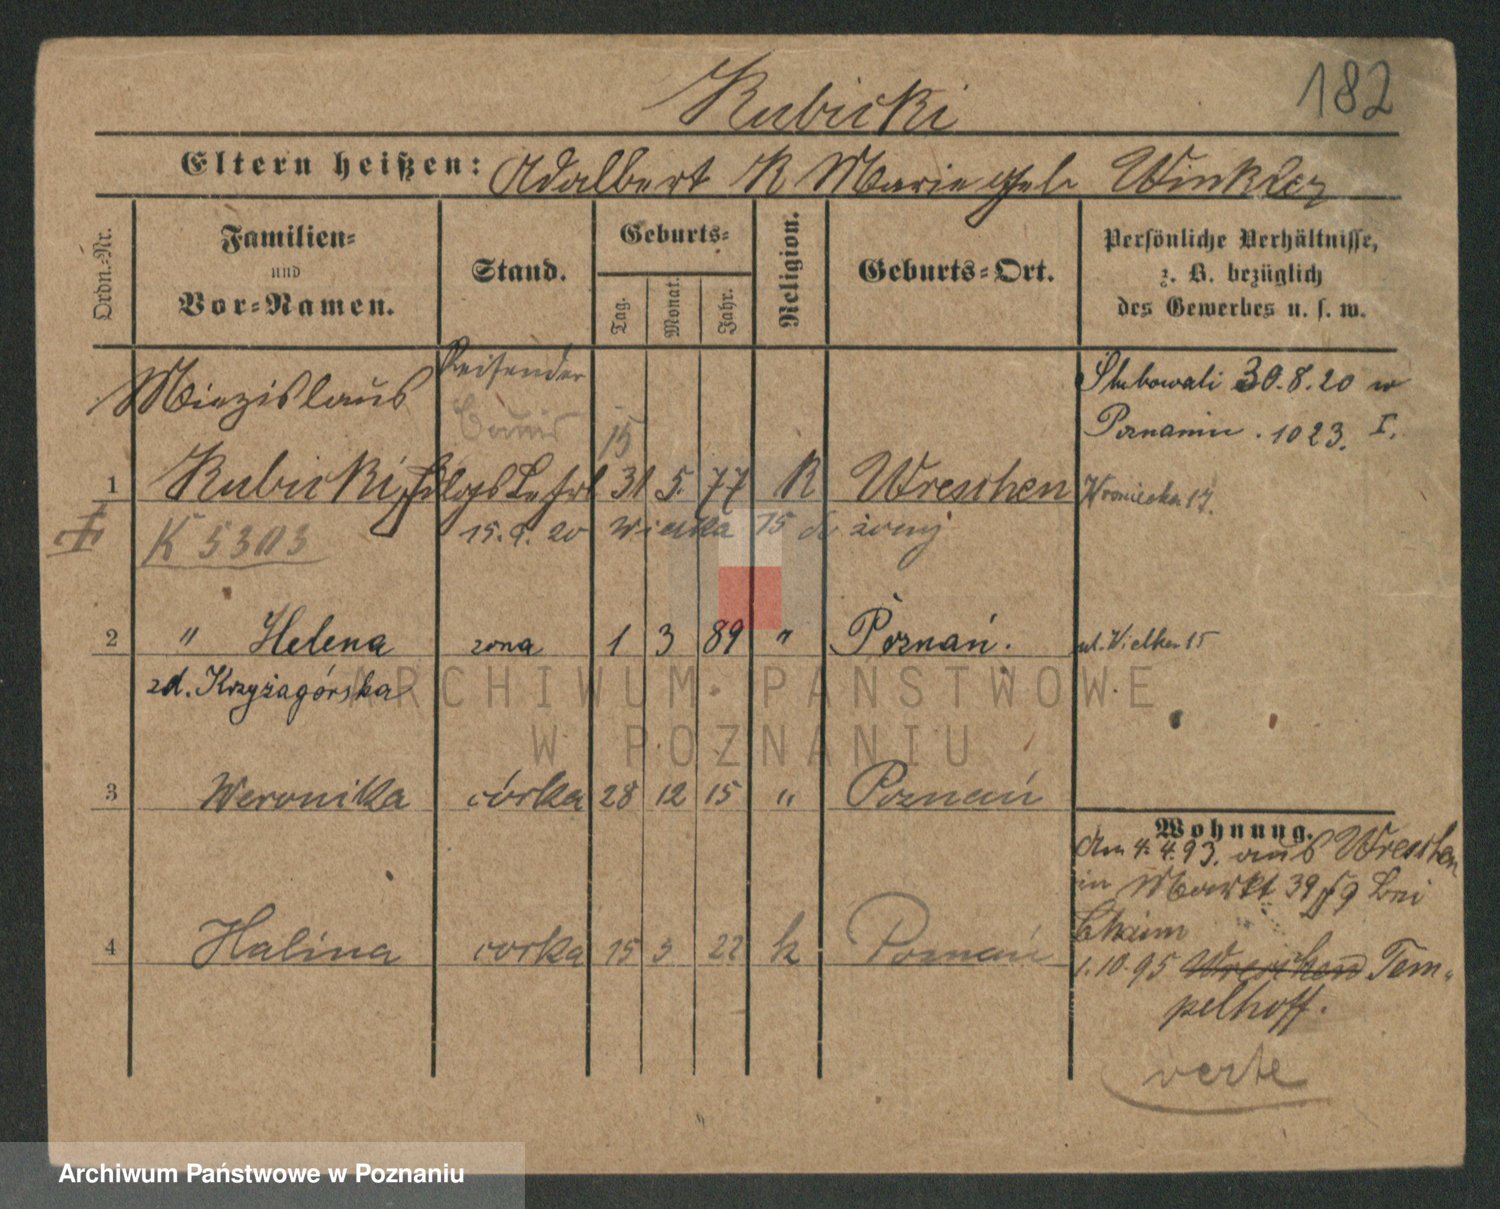 182
Rubicki
Eltern heißen: Adalbert R Marie geb. Winkler
Ordn.-Nr.
Familien-
und
Vor-Namen.
Stand.
Geburts-
Tag.
Monat.
Jahr.
Religion.
Geburts-Ort.
Persönliche Verhältnisse,
z. B. bezüglich
des Gewerbes u. s. w.
Miezislaus Reisender
Ślubowali 30.8.20 w
15
Poznaniu . 1023. I.
1 Rubicki 31 5. 77 R Wreschen
K 5303 15.9.20 Wielka 15 do żony
2 " Helena żona 1 3 89 " Poznań. ul. Wielka 15
zd. Krzyżagórska
3 Weronika córka 28 12 15 " Poznań
4 Halina corka 15 3 22 k Poznań
Wohnung.
Am 4.4.93. aus Wreschen
in Markt 39 bei
Chaim
1.10.95 Wreschen Tem-
pelhoff.
verte
ARCHIWUM PAŃSTWOWE
W POZNANIU
Archiwum Państwowe w Poznaniu